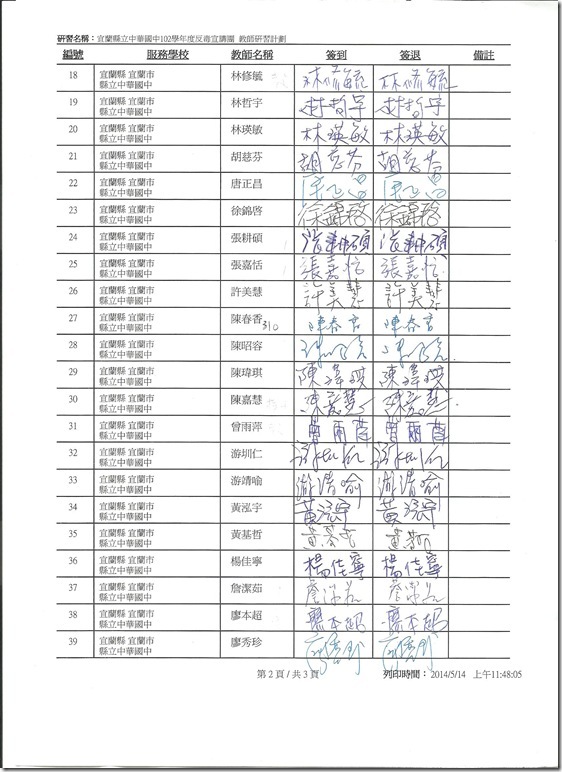 研習名稱：宜蘭縣立中華國中102學年度反毒宣講團 教師研習計劃
編號 服務學校 教師名稱 簽到 簽退 備註
18 宜蘭縣 宜蘭市 林修毓 林修毓 林修毓
縣立中華國中
19 宜蘭縣 宜蘭市 林哲宇 林哲宇 林哲宇
縣立中華國中
20 宜蘭縣 宜蘭市 林瑛敏 林瑛敏 林瑛敏
縣立中華國中
21 宜蘭縣 宜蘭市 胡慈芬 胡慈芬 胡慈芬
縣立中華國中
22 宜蘭縣 宜蘭市 唐正昌
縣立中華國中
23 宜蘭縣 宜蘭市 徐錦啓 徐錦啓 徐錦啓
縣立中華國中
24 宜蘭縣 宜蘭市 張耕碩 張耕碩 張耕碩
縣立中華國中
25 宜蘭縣 宜蘭市 張嘉恬 張嘉恬 張嘉恬
縣立中華國中
26 宜蘭縣 宜蘭市 許美慧 許美慧 許美慧
縣立中華國中
27 宜蘭縣 宜蘭市 陳春香 310 陳春香 陳春香
縣立中華國中
28 宜蘭縣 宜蘭市 陳昭容
縣立中華國中
29 宜蘭縣 宜蘭市 陳瑋琪 陳瑋琪 陳瑋琪
縣立中華國中
30 宜蘭縣 宜蘭市 陳嘉慧 陳嘉慧 陳嘉慧
縣立中華國中
31 宜蘭縣 宜蘭市 曾雨萍 曾雨萍 曾雨萍
縣立中華國中
32 宜蘭縣 宜蘭市 游圳仁 游圳仁 游圳仁
縣立中華國中
33 宜蘭縣 宜蘭市 游靖喻 游靖喻 游靖喻
縣立中華國中
34 宜蘭縣 宜蘭市 黃泓宇 黃泓宇 黃泓宇
縣立中華國中
35 宜蘭縣 宜蘭市 黃基哲 黃基哲 黃基哲
縣立中華國中
36 宜蘭縣 宜蘭市 楊佳寧 楊佳寧 楊佳寧
縣立中華國中
37 宜蘭縣 宜蘭市 詹潔茹 詹潔茹 詹潔茹
縣立中華國中
38 宜蘭縣 宜蘭市 廖本超 廖本超 廖本超
縣立中華國中
39 宜蘭縣 宜蘭市 廖秀珍
縣立中華國中
第 2 頁 / 共 3 頁 列印時間： 2014/5/14 上午11:48:05